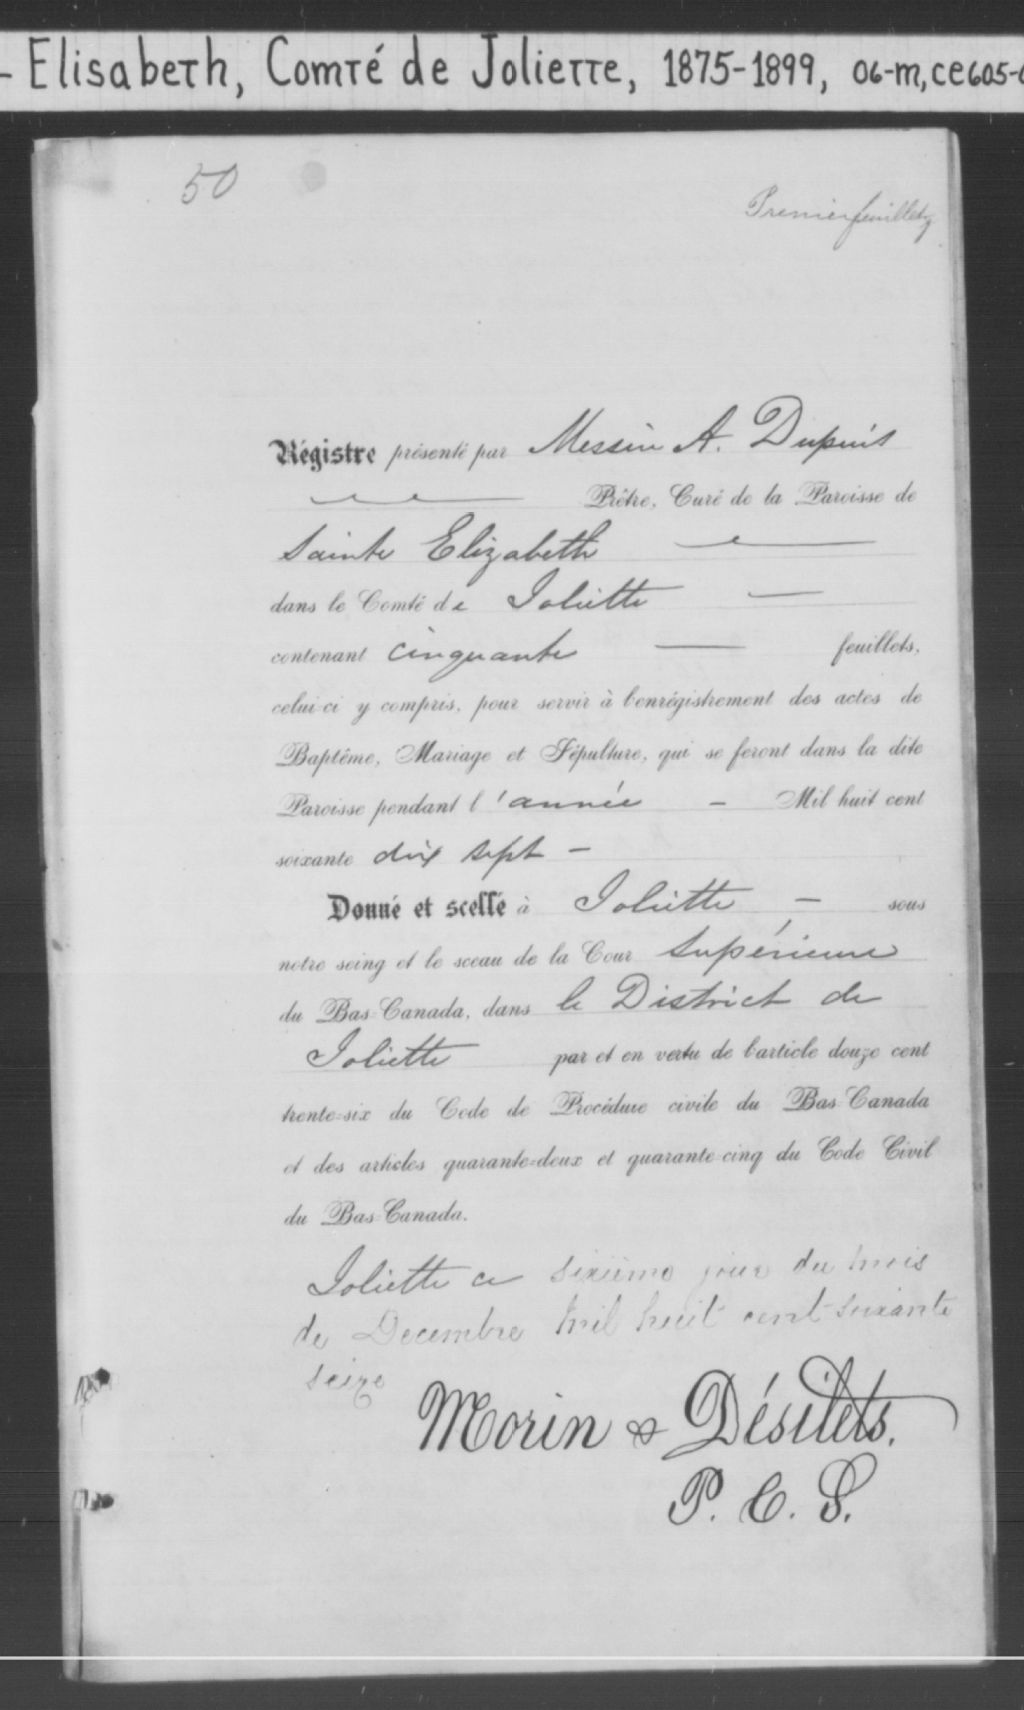 - Elisabeth, Comté de Joliette, 1875-1899, 06-m,ce605-
50
Premier feuillet
Régistre présenté par Messire A. Dupuis
Prêtre, Curé de la Paroisse de
Sainte Elizabeth
dans le Comté de Joliette
contenant cinquante feuillets,
celui-ci y compris, pour servir à l'enrégistrement des actes de
Baptême, Mariage et Sépulture, qui se feront dans la dite
Paroisse pendant l'année - Mil huit cent
soixante dix sept -
Donné et scellé à Joliette - sous
notre seing et le sceau de la Cour Supérieure
du Bas-Canada, dans le District de
Joliette par et en vertu de l'article douze cent
trente-six du Code de Procédure civile du Bas-Canada
et des articles quarante-deux et quarante-cinq du Code Civil
du Bas-Canada.
Joliette ce sixième jour du mois
de Decembre mil huit cent soixante
seize
Morin & Désilets.
P. C. S.